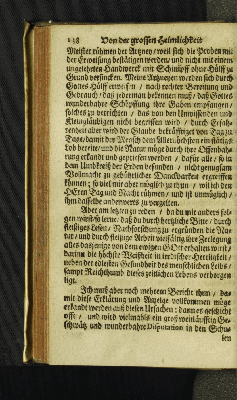 138 Von der grossen Heimlichkeit
Meister rühmen der Artzney / weil sich die Proben mit
der Erweisung bestätigen werden / und nicht mit einem
ungelehrten Handwerck mit Schimpff ohne Hülff zu
Grund versincken. Meine Artzneyen werden sich durch
Gottes Hülff erweisen / nach rechter Bereitung und
Gebrauch / daß jederman bekennen muß / daß Gottes
wunderbahre Schöpffung ihre Gaben empfangen /
solches zu verrichten / das von den Unwissenden und
Kleuglaubigen nicht betroffen wird / durch Erfah-
renheit aber wird der Glaube bekräfftiget von Tag zu
Tage / damit der Mensch den Allerhöchsten ein ständig
Lob bereite / und die Natur möge durch ihre Offenbah-
rung erkandt und gepriesen werden / dafür alle / so in
dem Umkreiß der Erden befunden / nicht gnugsam
Vollmacht zu gebührlicher Danckbarkeit ergreiffen
können; so viel mir aber möglich zu thun / will ich den
HErrn Tag und Nacht rühmen / und ist unmöglich /
ihm dasselbe anderwerts zu vergelten.
Aber am letzten zu reden / da du mit anders fol-
gen wirst / so lerne / daß du durch hertzliche Bitte / durch
fleissiges Lesen / Nachforschung zu ergründen die Na-
tur / und durch stetige Arbeit vielfältig ihre Zerlegung
alles das jenige von dem ewigen GOtt erhalten wirst /
darinn die höchste Weißheit in irrdischer Herrligkeit /
neben der edlesten Gesundheit des menschlichen Leibs /
sampt Reichthumb dieses zeitlichen Lebens verborgen
ligt.
Ich muß aber noch mehrern Bericht thun / da-
mit diese Erklärung und Anzeige vollkommen möge
erkandt werden auß diesen Ursachen: dann es geschicht
offt / und wird vielmahls ein groß weitläufftig Ge-
schwätz und wunderbahre Disputation in den Schu-
len